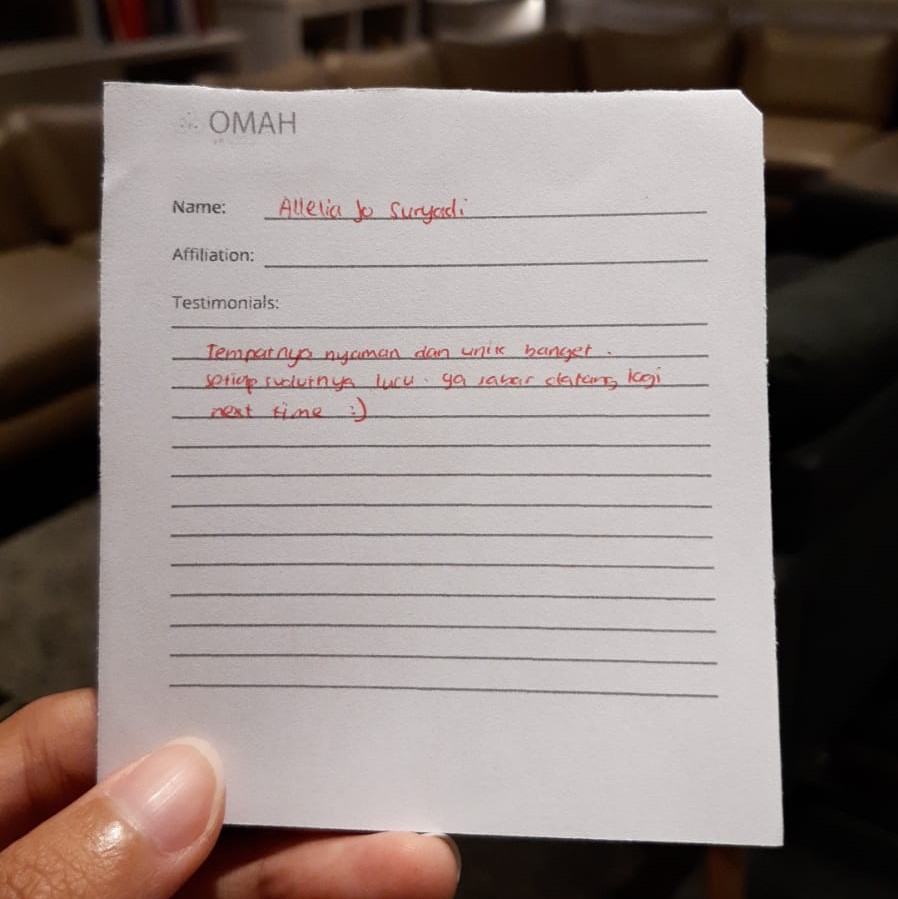 OMAH
Name: Allelia Jo Suryadi
Affiliation:
Testimonials:
Tempatnya nyaman dan unik banget.
setiap sudutnya lucu. ga sabar datang lagi
next time :)